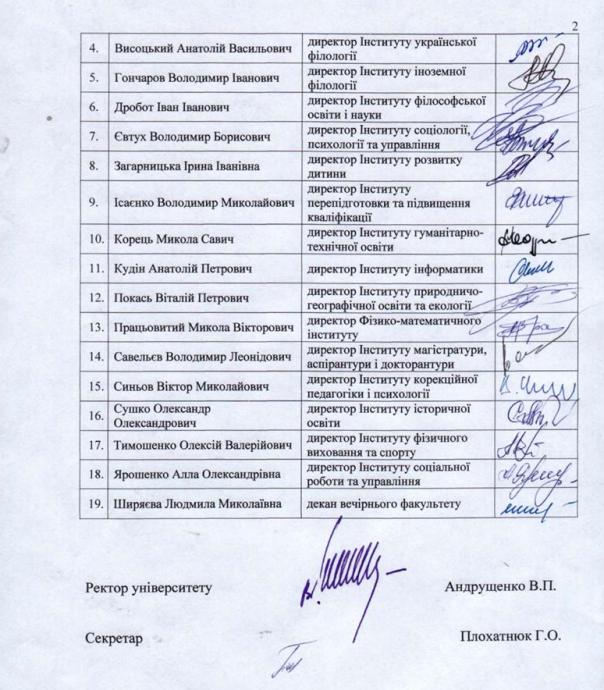 2
4. Висоцький Анатолій Васильович директор Інституту української
філології
5. Гончаров Володимир Іванович директор Інституту іноземної
філології
6. Дробот Іван Іванович директор Інституту філософської
освіти і науки
7. Євтух Володимир Борисович директор Інституту соціології,
психології та управління
8. Загарницька Ірина Іванівна директор Інституту розвитку
дитини
9. Ісаєнко Володимир Миколайович директор Інституту
перепідготовки та підвищення
кваліфікації
10. Корець Микола Савич директор Інституту гуманітарно-
технічної освіти
11. Кудін Анатолій Петрович директор Інституту інформатики
12. Покась Віталій Петрович директор Інституту природничо-
географічної освіти та екології
13. Працьовитий Микола Вікторович директор Фізико-математичного
інституту
14. Савельєв Володимир Леонідович директор Інституту магістратури,
аспірантури і докторантури
15. Синьов Віктор Миколайович директор Інституту корекційної
педагогіки і психології
16. Сушко Олександр директор Інституту історичної
Олександрович освіти
17. Тимошенко Олексій Валерійович директор Інституту фізичного
виховання та спорту
18. Ярошенко Алла Олександрівна директор Інституту соціальної
роботи та управління
19. Ширяєва Людмила Миколаївна декан вечірнього факультету
Ректор університету Андрущенко В.П.
Секретар Плохатнюк Г.О.